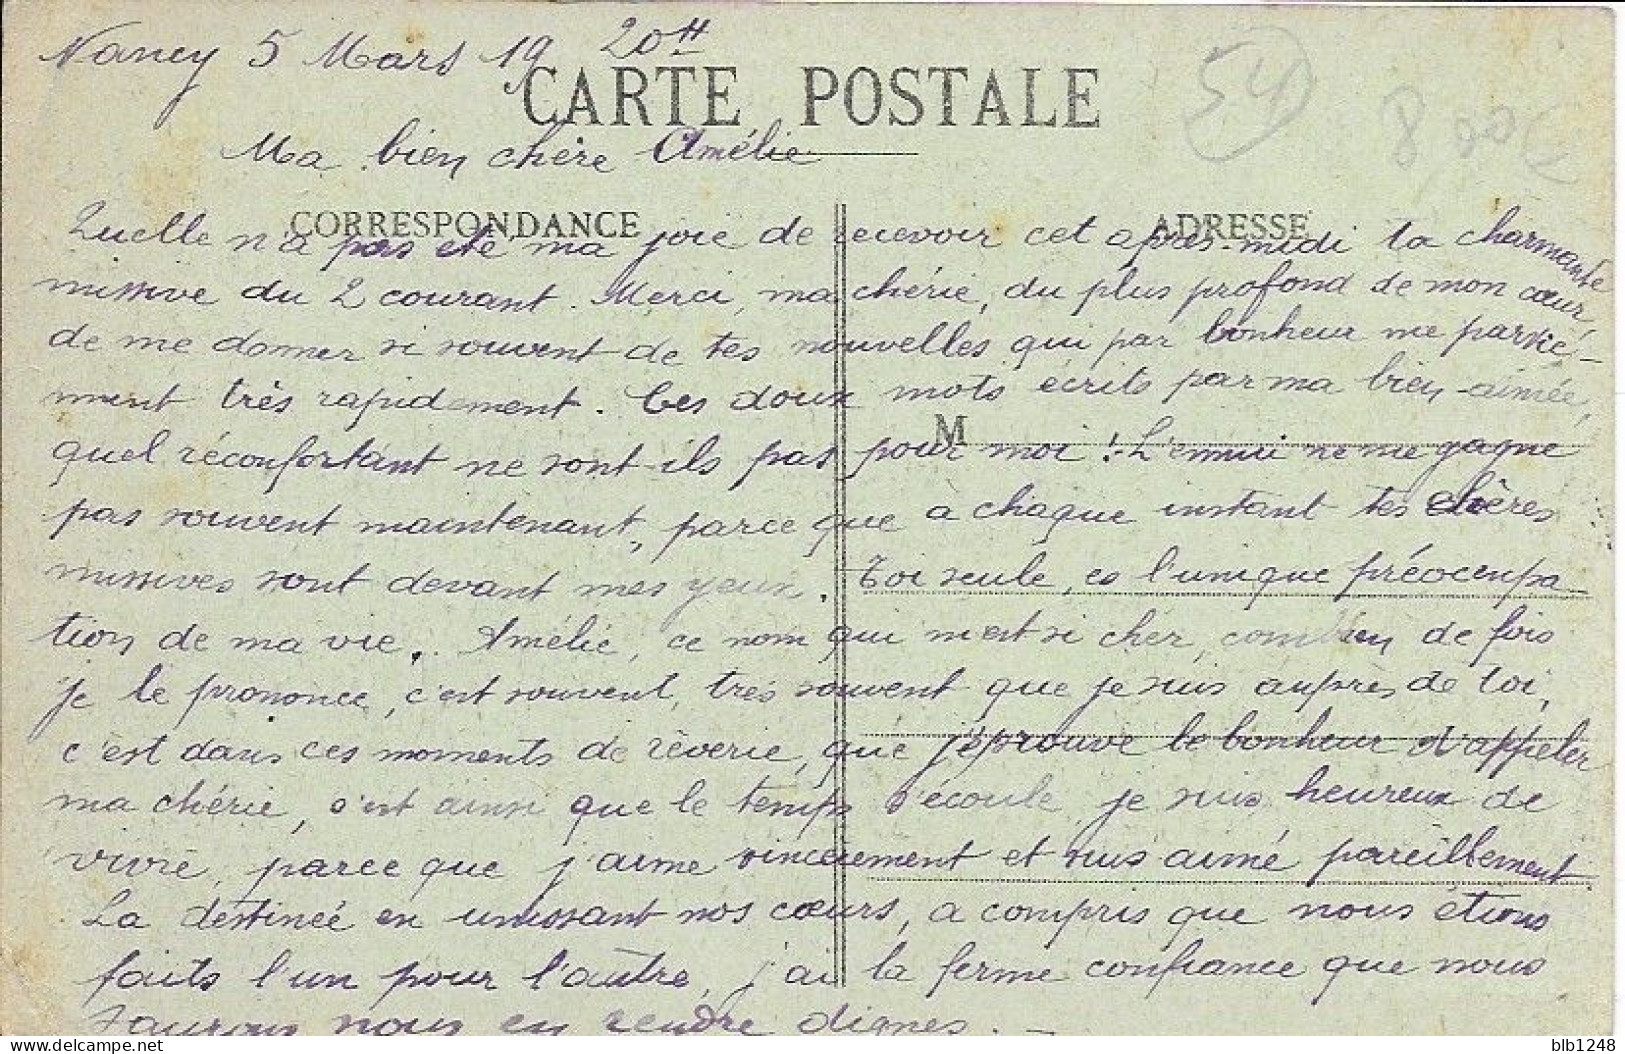 Nancy 5 Mars 19 20H
54
8,00€
CARTE POSTALE
Ma bien chère Amélie
CORRESPONDANCE
ADRESSE
Quelle n'a pas été ma joie de recevoir cet après-midi ta charmante
missive du 2 courant. Merci, ma chérie, du plus profond de mon cœur,
de me donner si souvent de tes nouvelles qui par bonheur me parvie-
nnent très rapidement. Ces doux mots écrits par ma bien-aimée,
M
quel réconfortant ne sont-ils pas pour moi ! L'ennui ne me gagne
pas souvent maintenant, parce que à chaque instant tes chères
missives sont devant mes yeux. Toi seule, es l'unique préoccupa-
tion de ma vie. Amélie, ce nom qui m'est si cher, combien de fois
je le prononce, c'est souvent, très souvent que je suis auprès de toi,
c'est dans ces moments de rêverie, que j'éprouve le bonheur d'appeler
ma chérie, c'est ainsi que le temps s'écoule, je suis heureux de
vivre, parce que j'aime sincèrement et suis aimé pareillement.
La destinée en unissant nos cœurs, a compris que nous étions
faits l'un pour l'autre, j'ai la ferme confiance que nous
saurons nous en rendre dignes. —
delcampe.net
blb1248